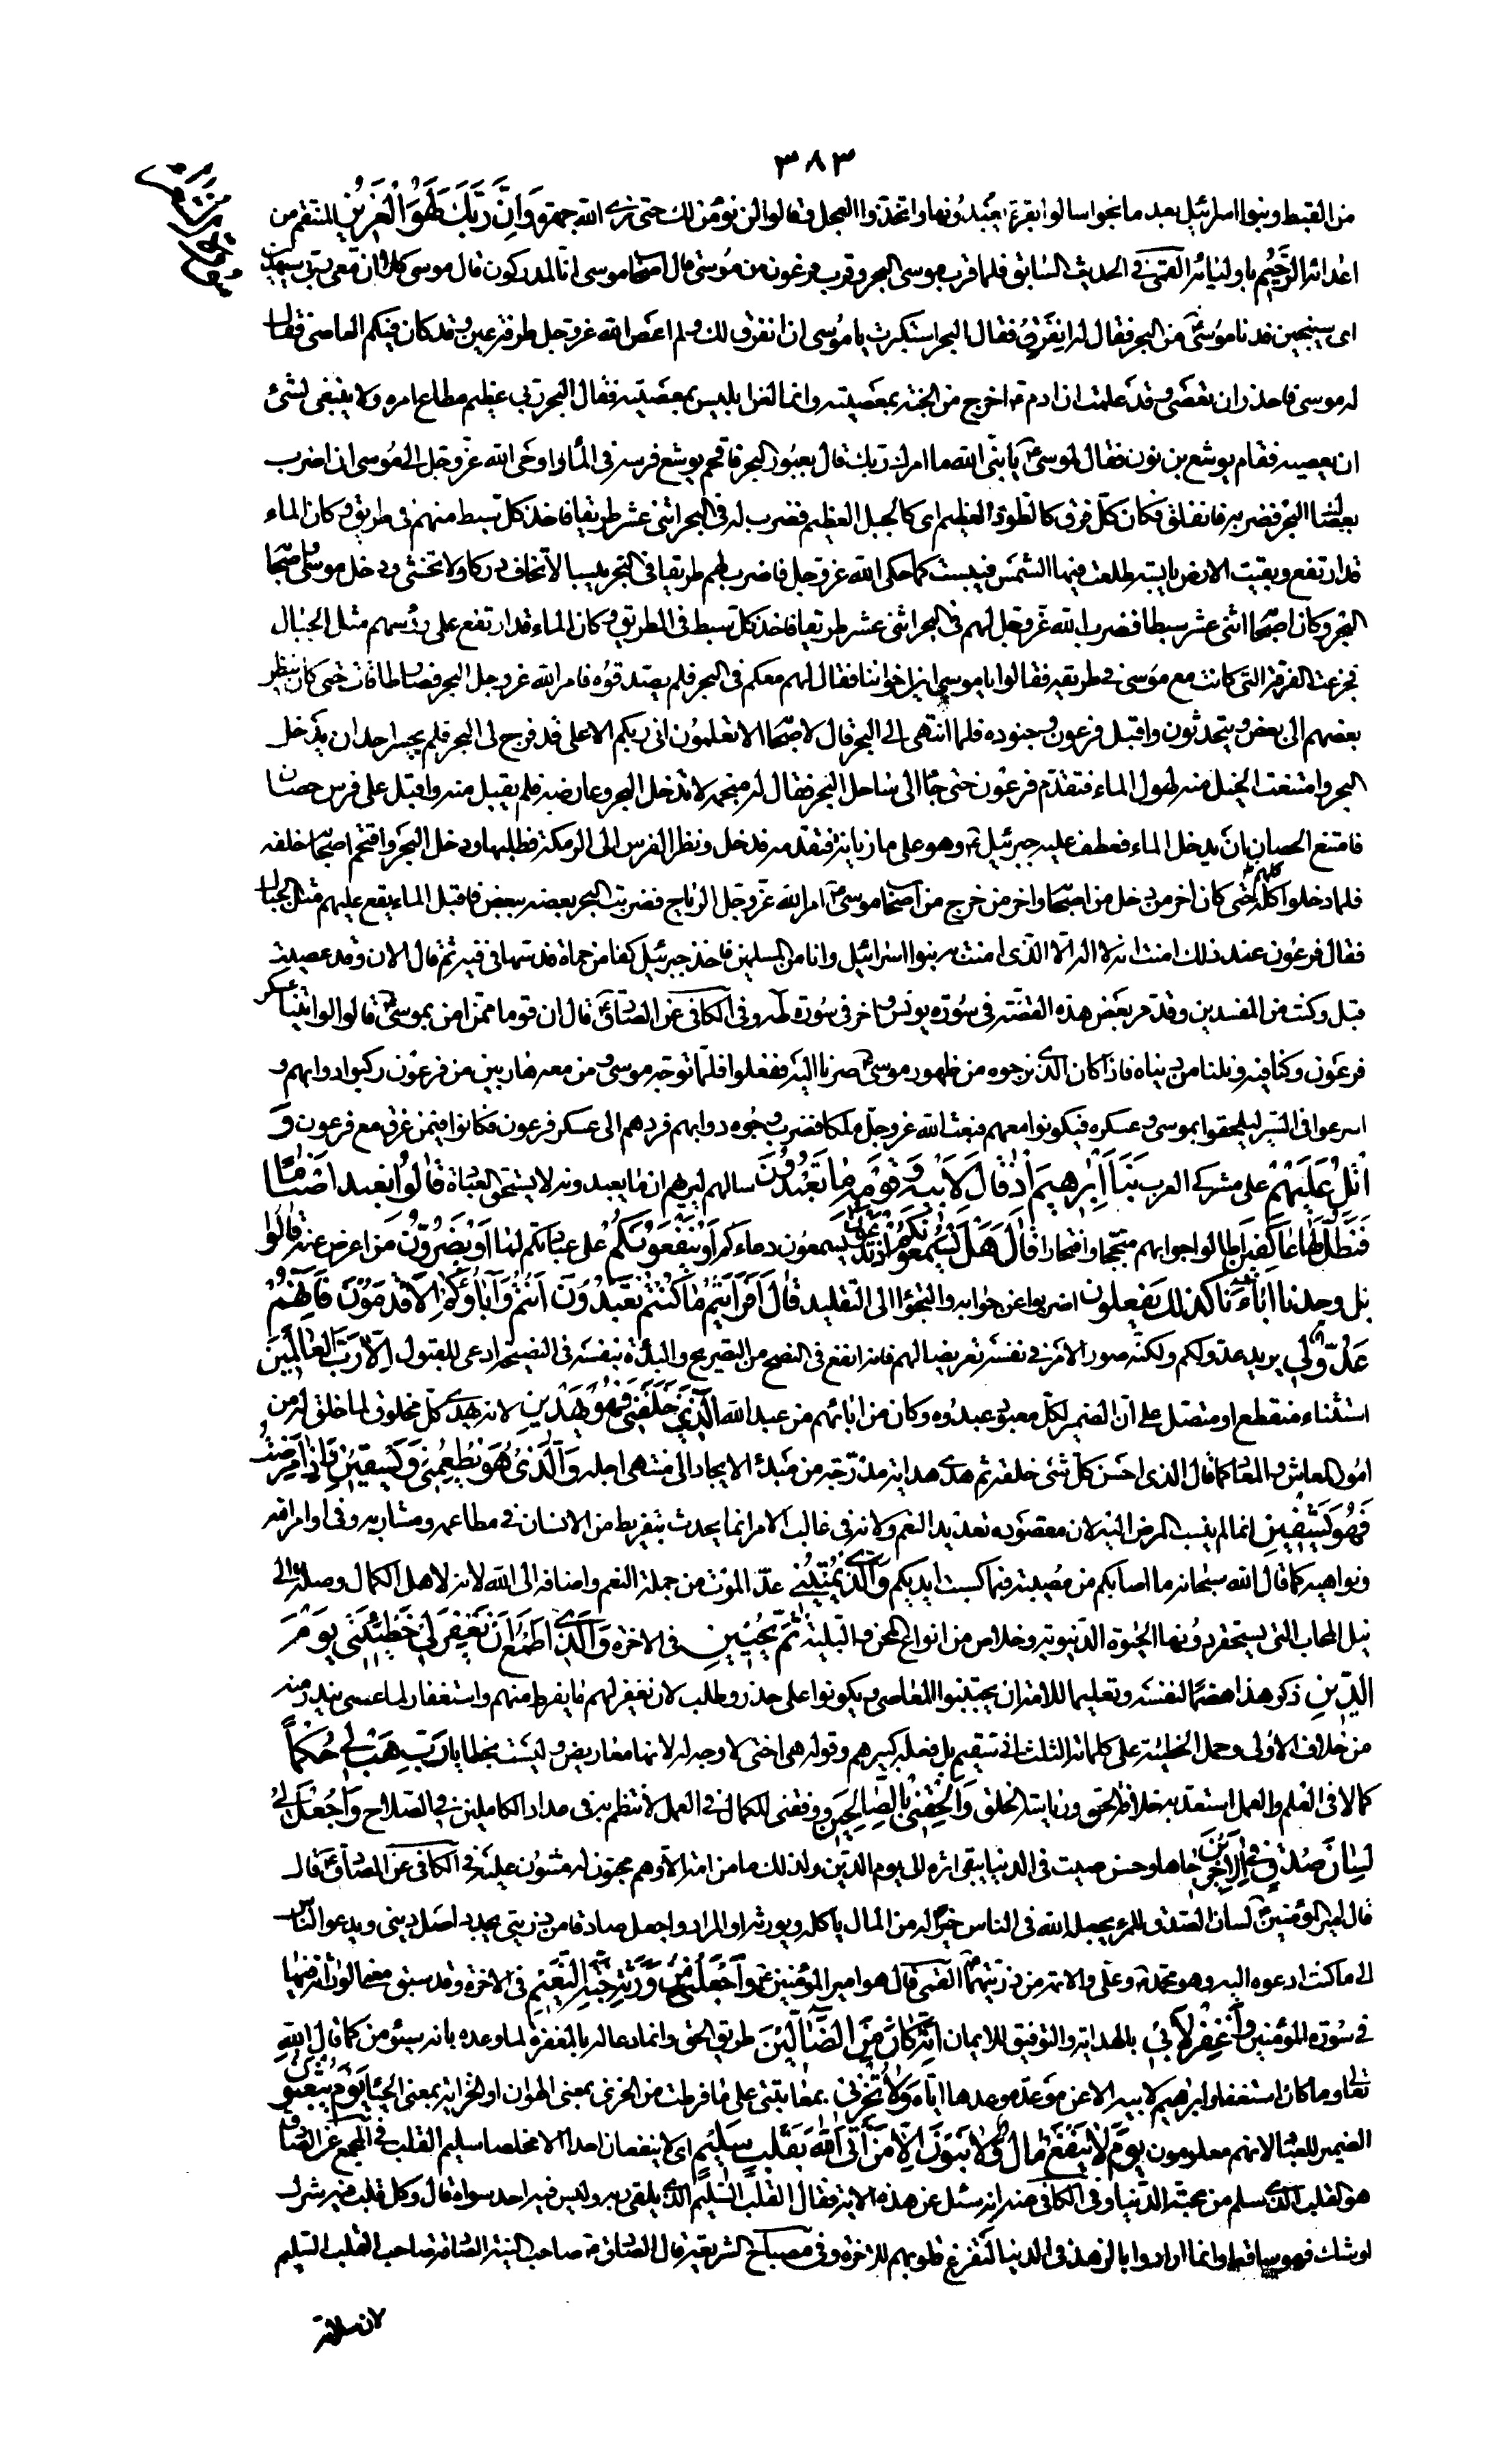 ٣٨٣
من القبط وبنوا اسرائيل بعد ما نجوا سالوا بقرة يعبدونها واتخذوا العجل وقالوا لن نؤمن لك حتى نرى الله جهرة وَاِنَّ رَبَّكَ لَهُوَ الْعَزيزُ المنتقم من
اعدائه الرَّحيمُ باوليائه القمى فى الحديث السابق فلما قرب موسى البحر وقرب فرعون من موسى قال اصحاب موسى انا لمدركون قال موسى كلا ان معى ربى سيهدين
اى سينجين فدنا موسى من البحر فقال له انفرق فقال البحر استكبرت يا موسى ان انفرق لك ولم اعص الله عز وجل طرفة عين وقد كان فيكم العاصى فقال
له موسى فاحذر ان تعصى وقد علمت ان ادم اخرج من الجنة بمعصيته وانما لعن ابليس بمعصيته فقال البحر ربى عظيم مطاع امره ولا ينبغى لشئ
ان يعصيه فقام يوشع بن نون فقال لموسى يا نبى الله ما امرك ربك قال بعبور البحر فاقحم يوشع فرسه فى الماء واوحى الله عز وجل الى موسى ان اضرب
بعصاك البحر فضربه فانفلق فكان كل فرق كالطود العظيم اى كالجبل العظيم فضرب له فى البحر اثنى عشر طريقا فاخذ كل سبط منهم فى طريق وكان الماء
قد ارتفع وبقيت الارض يابسة طلعت فيها الشمس فيبست كما حكى الله عز وجل فاضرب لهم طريقا فى البحر يبسا لا تخاف دركا ولا تخشى ودخل موسى واصحابه
البحر وكان اصحابه اثنى عشر سبطا فضرب الله عز وجل لهم فى البحر اثنى عشر طريقا فاخذ كل سبط فى الطريق وكان الماء قد ارتفع على رؤسهم مثل الجبال
فجزعت الفرقة التى كانت مع موسى فى طريقه فقالوا يا موسى اين اخواننا فقال لهم معكم فى البحر فلم يصدقوه فامر الله عز وجل البحر فصار طاقات حتى كان ينظر
بعضهم الى بعض ويتحدثون واقبل فرعون وجنوده فلما انتهى الى البحر قال لاصحابه الا تعلمون انى ربكم الاعلى قد فرج لى البحر فلم يجسر احد ان يدخل
البحر وامتنعت الخيل منه لهول الماء فتقدم فرعون حتى جاء الى ساحل البحر فقال له منجمه لا تدخل البحر وعارضه فلم يقبل منه واقبل على فرس حصان
فامتنع الحصان ان يدخل الماء فعطف عليه جبرئيل وهو على ماديانة فتقدمه فدخل ونظر الفرس الى الرمكة فطلبها ودخل البحر واقتحم اصحابه خلفه
فلما دخلوا كلهم حتى كان اخر من دخل من اصحابه واخر من خرج من اصحاب موسى امر الله عز وجل الرياح فضربت البحر بعضه ببعض فاقبل الماء يقع عليهم مثل الجبال
فقال فرعون عند ذلك امنت انه لا اله الا الذى امنت به بنوا اسرائيل وانا من المسلمين فاخذ جبرئيل كفا من حماة فدسها فى فيه ثم قال الان وقد عصيت
قبل وكنت من المفسدين وقد مر بعض هذه القصة فى سورة يونس واخر فى سورة طه وفى الكافى عن الصادق قال ان قوما ممن امن بموسى قالوا لو اتينا عسكر
فرعون وكنا فيه ونلنا من دنياه فاذا كان الذى نرجوه من ظهور موسى صرنا اليه ففعلوا فلما توجه موسى ومن معه هاربين من فرعون ركبوا دوابهم و
اسرعوا فى السير ليلحقوا بموسى وعسكره فيكونوا معهم فبعث الله عز وجل ملكا فضرب وجوه دوابهم فردهم الى عسكر فرعون فكانوا فيمن غرق مع فرعون وَ
اتْلُ عَلَيْهِمْ على مشركى العرب نَبَأَ اِبْرهيمَ اِذْ قالَ لِاَبيهِ وَقَوْمِهِ ما تَعْبُدُونَ سالهم ليريهم ان ما يعبدونه لا يستحق العبادة قالُوا نَعْبُدُ اَصْنامًا
فَنَظَلُّ لَها عاكِفينَ اطالوا جوابهم تبجحا وافتخارا قالَ هَلْ يَسْمَعُونَكُمْ اِذْ تَدْعُونَ يسمعون دعاءكم اَوْ يَنْفَعُونَكُمْ على عبادتكم لها اَوْ يَضُرُّونَ من اعرض عنه قالُوا
بَلْ وَجَدْنا اباءَنا كَذلِكَ يَفْعَلُونَ اضربوا عن جوابه والتجؤا الى التقليد قالَ اَفَرَاَيْتُمْ ما كُنْتُمْ تَعْبُدُونَ اَنْتُمْ وَاباؤُكُمُ الْاَقْدَمُونَ فَاِنَّهُمْ
عَدُوٌّ لي يريد عدو لكم ولكنه صور الامر فى نفسه تعريضا لهم فانه انفع فى النصح من التصريح والبدأة بنفسه فى النصيحة ادعى للقبول اِلَّا رَبَّ الْعالَمينَ
استثناء منقطع او متصل على ان الضمير لكل معبود عبدوه وكان من ابائهم من عبد الله اَلَّذي خَلَقَني فَهُوَ يَهْدينِ لانه يهدى كل مخلوق لما خلق له من
امور المعاش والمعاد كما قال الذى احسن كل شئ خلقه ثم هدى هداية مدرجة من مبدء الايجاد الى منتهى اجله وَالَّذي هُوَ يُطْعِمُني وَيَسْقينِ وَاِذا مَرِضْتُ
فَهُوَ يَشْفينِ انما لم ينسب المرض اليه لان مقصوده تعديد النعم ولانه فى غالب الامر انما يحدث بتفريط من الانسان فى مطاعمه ومشاربه وفى اوامر الله
ونواهيه كما قال الله سبحانه ما اصابكم من مصيبة فبما كسبت ايديكم وَالَّذي يُميتُني عد الموت من جملة النعم واضافه الى الله لانه لاهل الكمال وصلة الى
نيل المحاب التى يستحقر دونها الحيوة الدنيوية وخلاص من انواع المحن والبلية ثُمَّ يُحْيينِ فى الاخرة وَالَّذي اَطْمَعُ اَنْ يَغْفِرَ لي خَطيئَتي يَوْمَ
الدّينِ ذكر هذا هضما لنفسه وتعليما للامة ان يجتنبوا المعاصى ويكونوا على حذر وطلب لان يغفر لهم ما يفرط منهم واستغفار لما عسى يندر منه
من خلاف الاولى وحمل الخطيئة على كلماته الثلث انى سقيم بل فعله كبيرهم وقوله هى اختى لا وجه له لانها معاريض وليست بخطايا رَبِّ هَبْ لي حُكْمًا
كمالا فى العلم والعمل استعد به خلافة الحق ورياسة الخلق وَاَلْحِقْني بِالصّالِحينَ ووفقنى للكمال فى العمل لانتظم به فى عداد الكاملين فى الصلاح وَاجْعَلْ لي
لِسانَ صِدْقٍ فِي الْاخِرينَ جاها وحسن صيت فى الدنيا يبقى اثره الى يوم الدين ولذلك ما من امة الا وهم محبون له مثنون عليه فى الكافى عن الصادق قال
قال امير المؤمنين لسان الصدق للمرء يجعله الله فى الناس خير له من المال ياكله ويورثه او المراد واجعل صادقا من ذريتى يجدد اصل دينى ويدعو الناس
الى ما كنت ادعوهم اليه وهو محمد وعلى والائمة من ذريتهما القمى قال هو امير المؤمنين وَاجْعَلْني مِنْ وَرَثَةِ جَنَّةِ النَّعيمِ فى الاخرة وقد سبق معنى الوراثة فيها
فى سورة المؤمنين وَاغْفِرْ لِاَبي بالهداية والتوفيق للايمان اِنَّهُ كانَ مِنَ الضّالّينَ طريق الحق وانما دعا له بالمغفرة لما وعده بانه سيؤمن كما قال الله
تعالى وما كان استغفار ابراهيم لابيه الا عن موعدة وعدها اياه وَلا تُخْزِني بمعاتبتى على ما فرطت من الخزى بمعنى الهوان او الخزاية بمعنى الحياء يَوْمَ يُبْعَثُونَ
الضمير للعباد لانهم معلومون يَوْمَ لا يَنْفَعُ مالٌ وَلا بَنُونَ اِلّا مَنْ اَتَى اللهَ بِقَلْبٍ سَليمٍ اى لا ينفعان احدا الا مخلصا سليم القلب فى المجمع عن الصادق
هو القلب الذى سلم من محبة الدنيا وفى الكافى عنه انه سئل عن هذه الاية فقال القلب السليم الذى يلقى ربه وليس فيه احد سواه قال وكل قلب فيه شرك
او شك فهو ساقط وانما ارادوا بالزهد فى الدنيا لتفرغ قلوبهم للاخرة وفى مصباح الشريعة قال الصادق صاحب النية الصادقة صاحب القلب السليم
لان سلامة